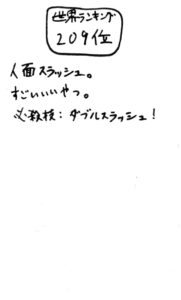 世界ランキング
209位
人面スラッシュ。
すごいいいやつ。
必殺技：ダブルスラッシュ！